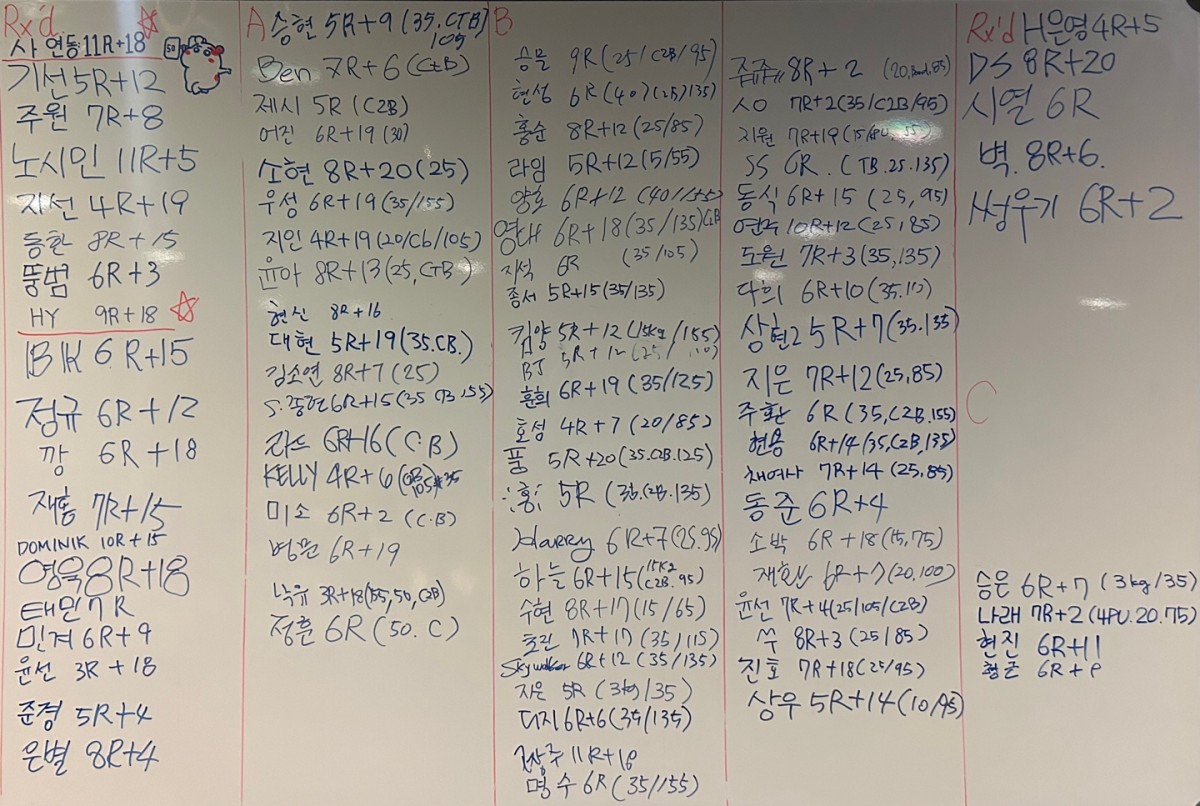 Rx'd
사 연동 11R+18
50
기선 5R+12
주원 7R+8
노시인 11R+5
지선 4R+19
동환 8R+15
뚱범 6R+3
HY 9R+18
BK 6R+15
정규 6R+12
깡 6R+18
재홍 7R+15
DOMINIK 10R+15
영욱 8R+18
태민 7R
민겨 6R+9
윤선 3R+18
준경 5R+4
은별 8R+4
A
승현 5R+9 (35.CTB)
105
Ben 7R+6 (CtB)
제시 5R (C2B)
어진 6R+19 (30)
소현 8R+20 (25)
우성 6R+19 (35/155)
지인 4R+19 (20/Cb/105)
윤아 8R+13 (25,CTB)
현진 8R+16
대현 5R+19 (35.CB.)
김소연 8R+7 (25)
6R+15 (35 155)
라스 6R+16 (C.B)
KELLY 4R+6
미소 6R+2 (C.B)
병문 6R+19
낙유 3R+18 (155,50,C2B)
정훈 6R (50.C)
B
승문 9R (25/C2B/95)
현성 6R (40)(25)(135)
홍순 8R+12 (25/85)
라임 5R+12 (5/55)
양호 6R+12 (40/155)
영대 6R+18 (35/135)
지석 6R (35/105)
종서 5R+15 (35/135)
킴양 5R+12 (15kg/155)
BJ 5R+12
훈희 6R+19 (35/125)
호성 4R+7 (20/85)
품 5R+20 (35.C2B.125)
홍 5R (35.C2B.135)
Harry 6R+7 (25.95)
하늘 6R+15 (15K2 C2B.95)
수현 8R+17 (15/65)
7R+17 (35/115)
Skywalker 6R+12 (35/135)
지은 5R (3kg/35)
디지 6R+6 (35/135)
11R+18
명수 6R (35/155)
쥬쥬 8R+2 (20,Band,85)
7R+2 (35/C2B/95)
지원 7R+19
SS 6R. (TB.25.135)
동식 6R+15 (25,95)
연주 10R+12 (25,85)
도원 7R+3 (35,135)
다희 6R+10
상현2 5R+7 (35.135)
지은 7R+12 (25,85)
주환 6R (35,C2B,155)
현용 6R+14 (35,C2B,135)
채여사 7R+14 (25,85)
동준 6R+4
소박 6R+18 (15,75)
(20,100)
윤선 7R+4 (25/105/C2B)
쑤 8R+3 (25/85)
진호 7R+18 (25/95)
상우 5R+14 (10/95)
Rx'd
H은영 4R+5
DS 8R+20
시열 6R
벽. 8R+6.
씽우기 6R+2
C
승은 6R+7 (3kg/35)
나래 7R+2 (4PU.20.75)
현진 6R+11
6R+9